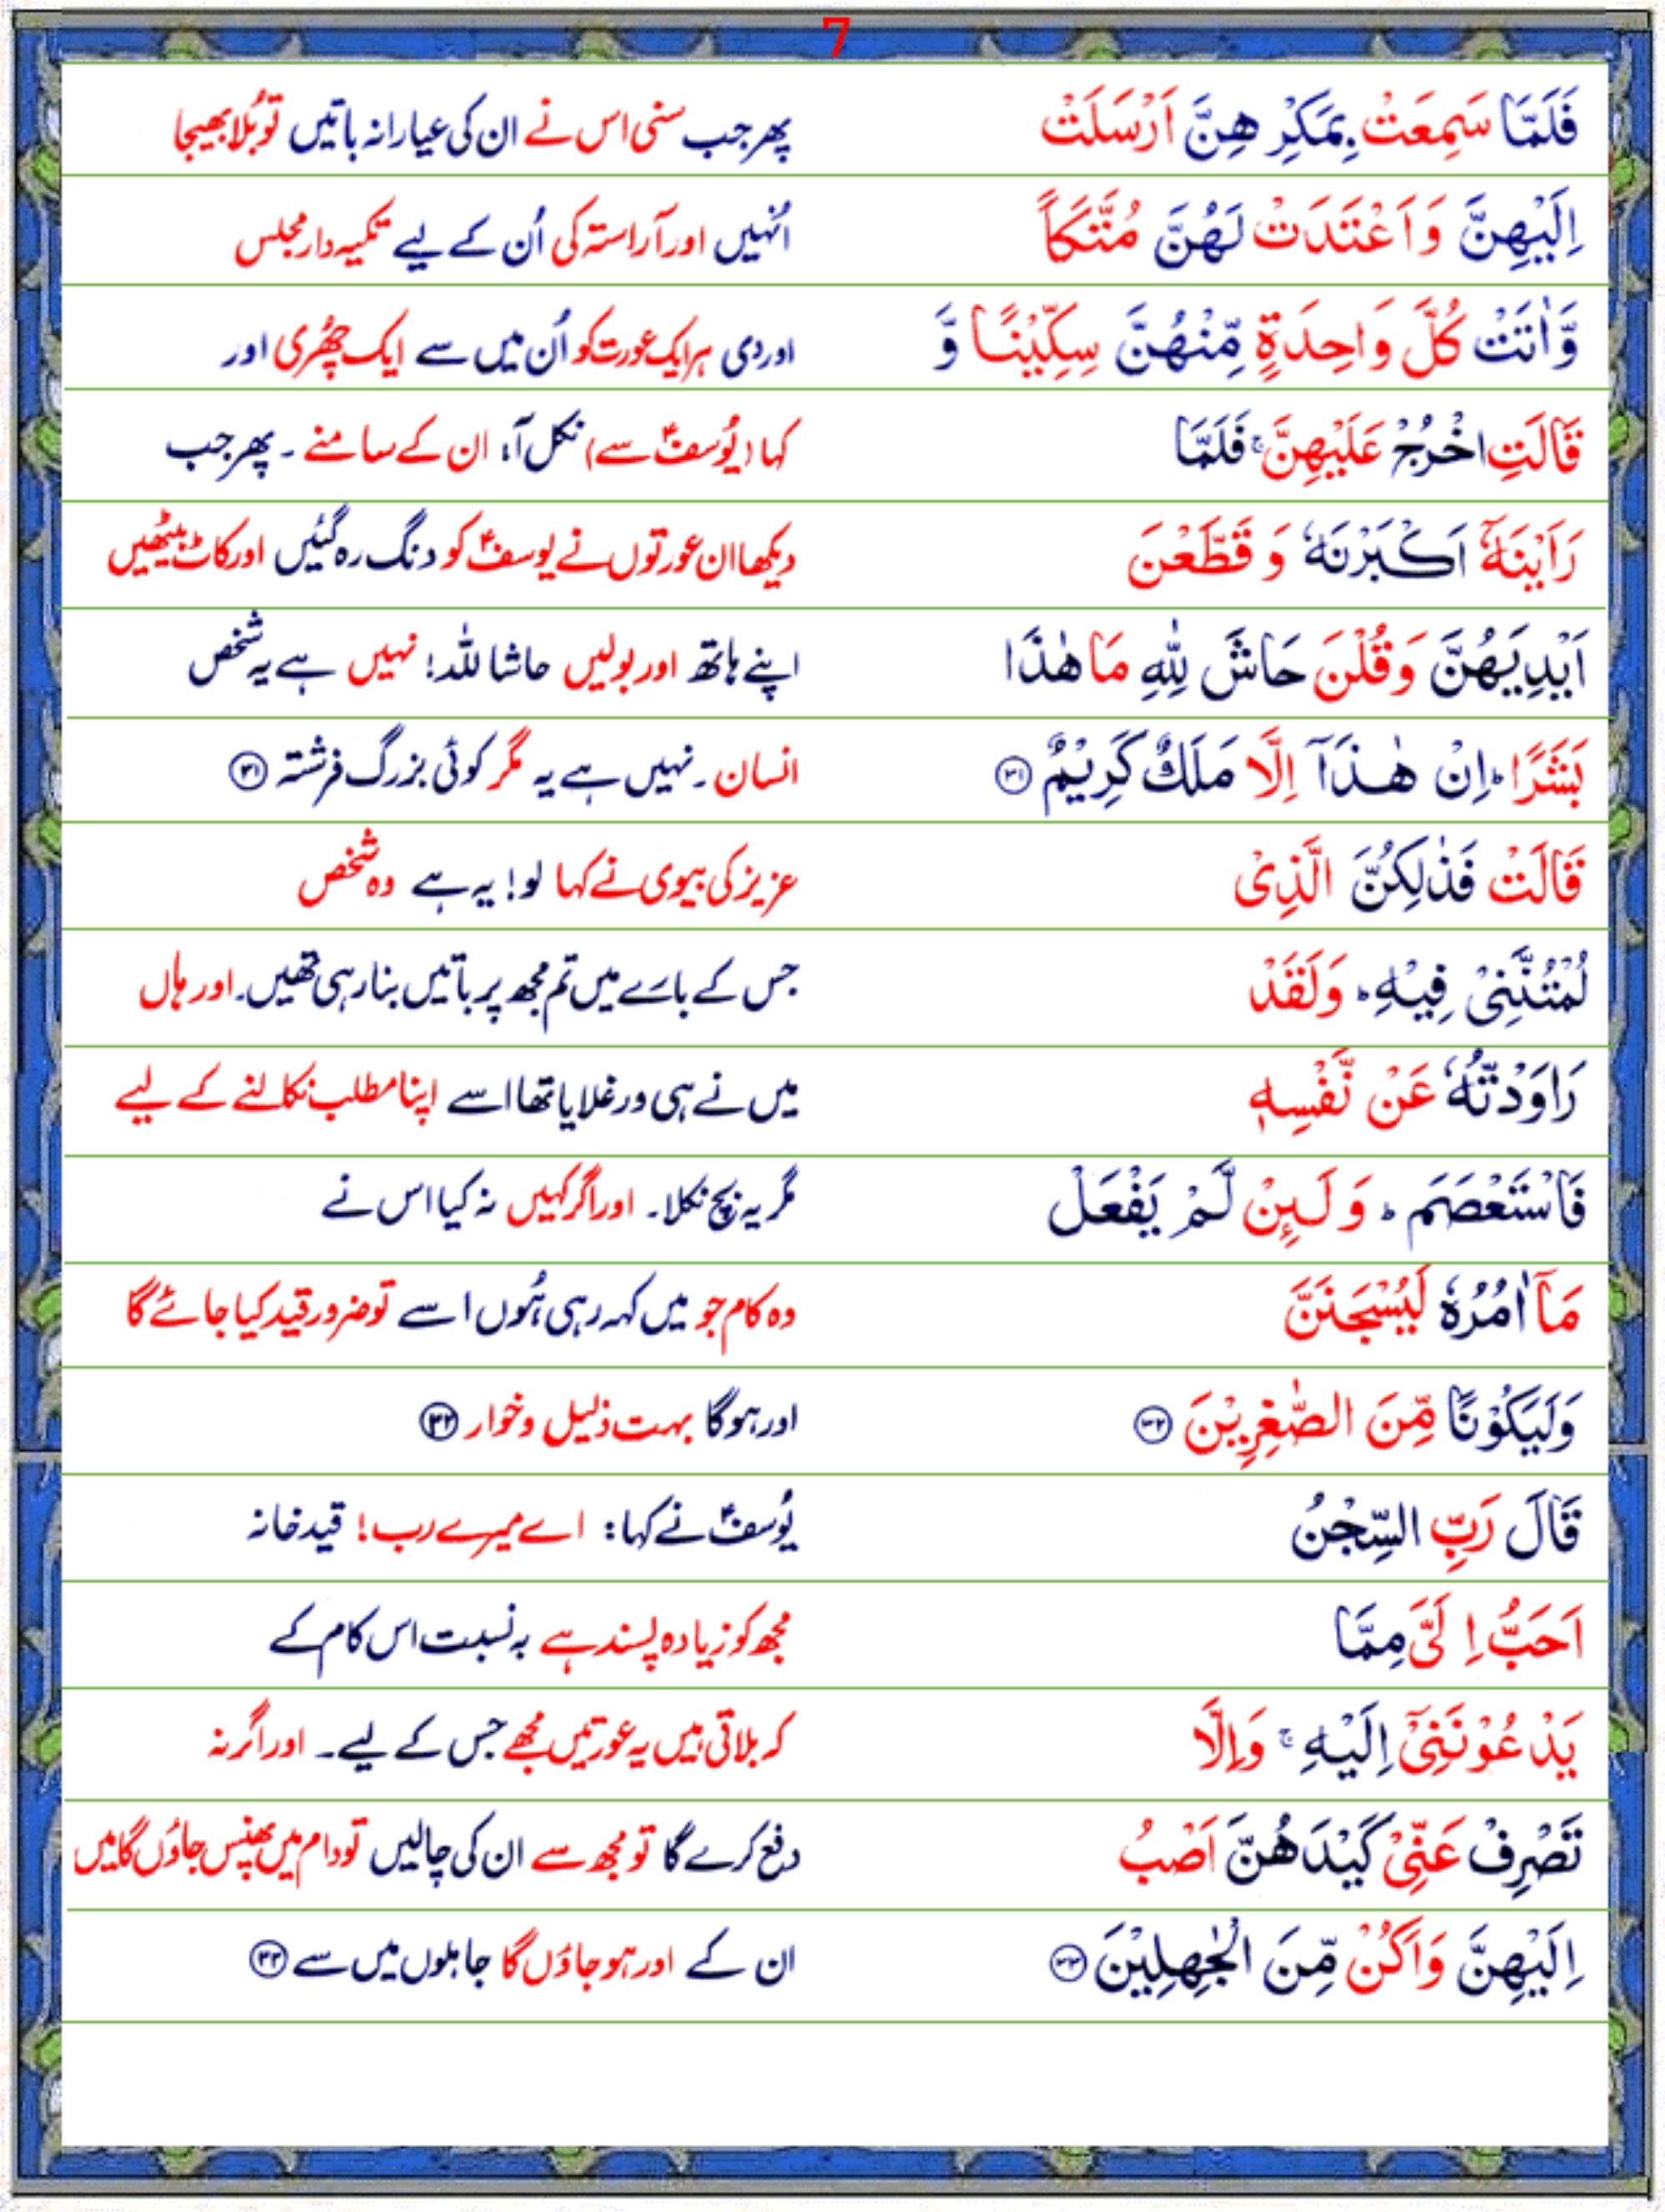 7
فَلَمَّا سَمِعَتْ بِمَكْرِ هِنَّ اَرْسَلَتْ
پھر جب سنی اس نے ان کی عیارانہ باتیں تو بُلا بھیجا
اِلَيْهِنَّ وَاَعْتَدَتْ لَهُنَّ مُتَّكَاً
اُنہیں اور آراستہ کی اُن کے لیے تکیہ دار مجلس
وَّاٰتَتْ كُلَّ وَاحِدَةٍ مِّنْهُنَّ سِكِّيْنًا وَّ
اور دی ہر ایک عورت کو اُن میں سے ایک چھُری اور
قَالَتِ اخْرُجْ عَلَيْهِنَّ ۚ فَلَمَّا
کہا (یُوسفؑ سے) نکل آ، ان کے سامنے ۔ پھر جب
رَاَيْنَهٗٓ اَكْبَرْنَهٗ وَ قَطَّعْنَ
دیکھا ان عورتوں نے یوسفؑ کو دنگ رہ گئیں اور کاٹ بیٹھیں
اَيْدِيَهُنَّ وَقُلْنَ حَاشَ لِلّٰهِ مَا هٰذَا
اپنے ہاتھ اور بولیں حاشا للہ! نہیں ہے یہ شخص
بَشَرًا ؕ اِنْ هٰذَآ اِلَّا مَلَكٌ كَرِيْمٌ ۝۳۱
انسان ۔ نہیں ہے یہ مگر کوئی بزرگ فرشتہ ۝۳۱
قَالَتْ فَذٰلِكُنَّ الَّذِىْ
عزیز کی بیوی نے کہا لو! یہ ہے وہ شخص
لُمْتُنَّنِىْ فِيْهِ ؕ وَلَقَدْ
جس کے بارے میں تم مجھ پر باتیں بنا رہی تھیں۔ اور ہاں
رَاوَدْتُّهٗ عَنْ نَّفْسِهٖ
میں نے ہی ورغلایا تھا اسے اپنا مطلب نکالنے کے لیے
فَاسْتَعْصَمَ ؕ وَ لَـئِنْ لَّمْ يَفْعَلْ
مگر یہ بچ نکلا۔ اور اگر کہیں نہ کیا اس نے
مَآ اٰمُرُهٗ لَيُسْجَنَنَّ
وہ کام جو میں کہہ رہی ہُوں اسے تو ضرور قید کیا جائے گا
وَلَيَكُوْنًا مِّنَ الصّٰغِرِيْنَ ۝۳۲
اور ہوگا بہت ذلیل و خوار ۝۳۲
قَالَ رَبِّ السِّجْنُ
یُوسفؑ نے کہا: اے میرے رب! قید خانہ
اَحَبُّ اِ لَىَّ مِمَّا
مجھ کو زیادہ پسند ہے بہ نسبت اس کام کے
يَدْعُوْنَنِىْٓ اِلَيْهِ ۚ وَاِلَّا
کہ بلاتی ہیں یہ عورتیں مجھے جس کے لیے۔ اور اگر نہ
تَصْرِفْ عَنِّىْ كَيْدَهُنَّ اَصْبُ
دفع کرے گا تو مجھ سے ان کی چالیں تو دام میں پھنس جاؤں گا میں
اِلَيْهِنَّ وَاَكُنْ مِّنَ الْجٰهِلِيْنَ ۝۳۳
ان کے اور ہو جاؤں گا جاہلوں میں سے ۝۳۳